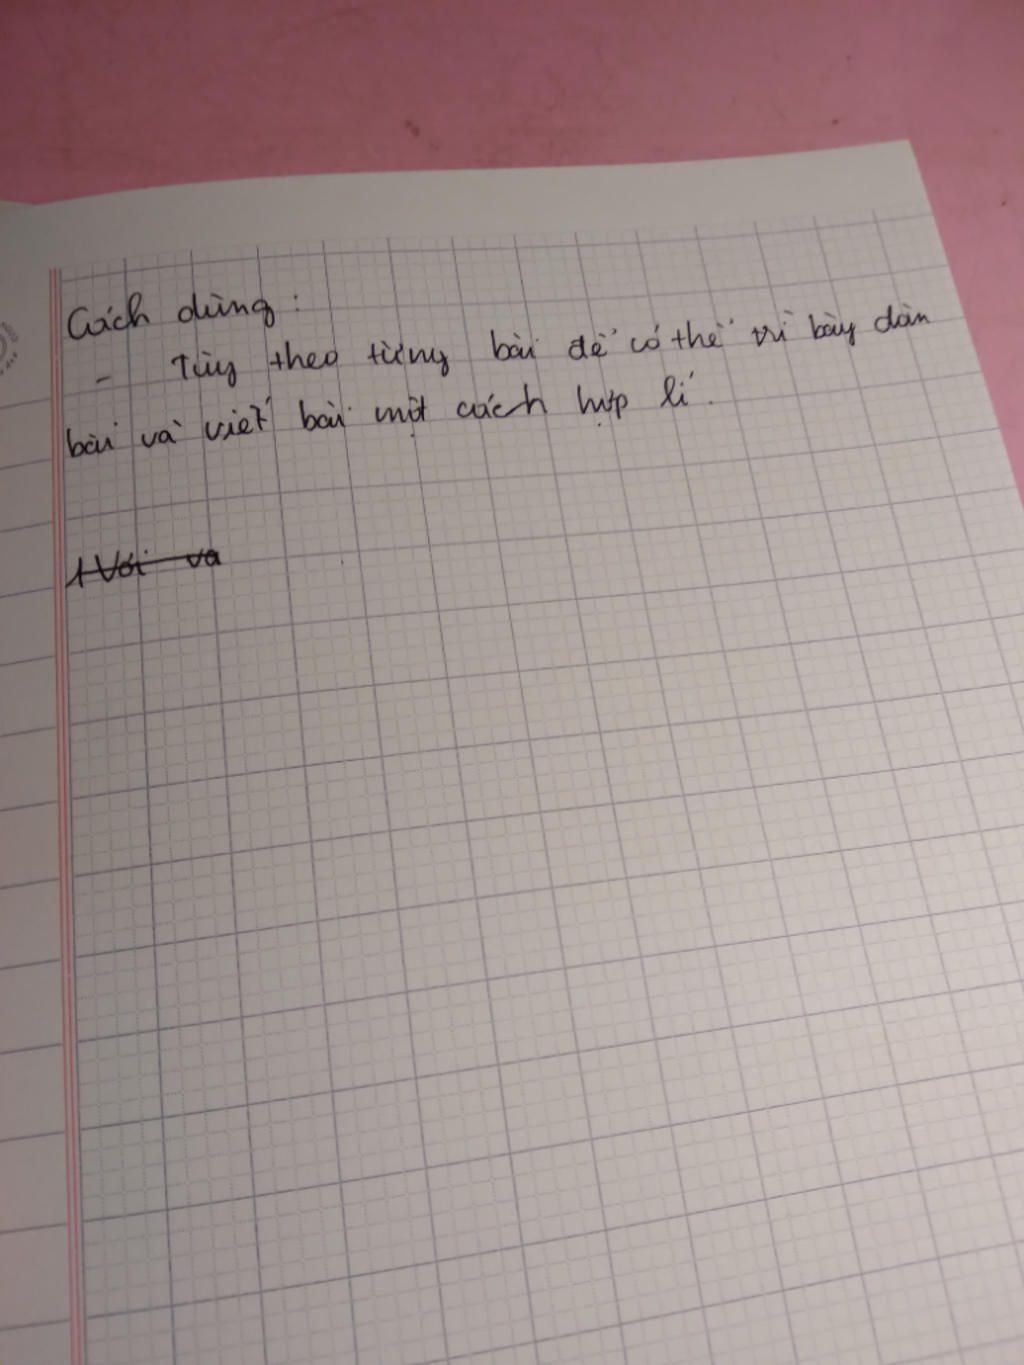 Cách dùng:
- Tùy theo từng bài để có thể trì bày dàn
bài và viết bài một cách hợp lí.
+ Với va